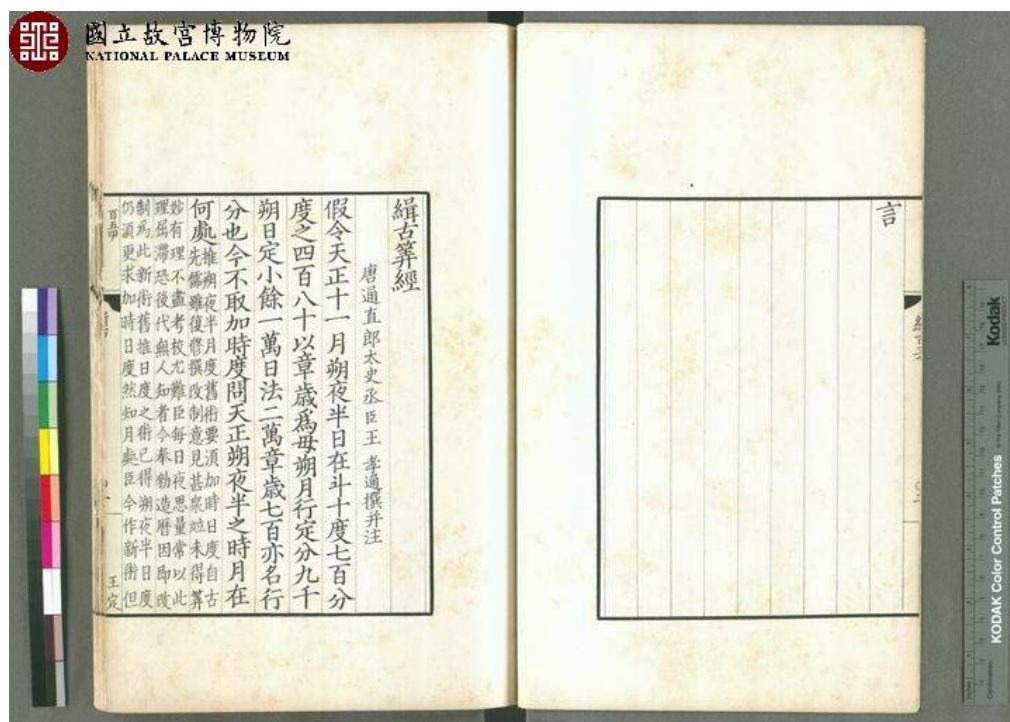 國立故宮博物院
NATIONAL PALACE MUSEUM
言
緝古筭經
唐通直郎太史丞臣王 孝通撰并注
假令天正十一月朔夜半日在斗十度七百分
度之四百八十以章歲爲母朔月行定分九千
朔日定小餘一萬日法二萬章歲七百亦名行
分也今不取加時度問天正朔夜半之時月在
何處推朔夜半月度舊術要須加時日度自古
先儒雖復修撰改制意見甚衆竝未得筭
妙有理不盡考校尤難臣每日夜思量常以此
理屈滯恐後代無人知者今奉勑造曆因即改
制爲此新術舊推日度之術已得朔夜半日度
仍須更求加時日度然知月處臣今作新術但
王定
Kodak
KODAK Color Control Patches